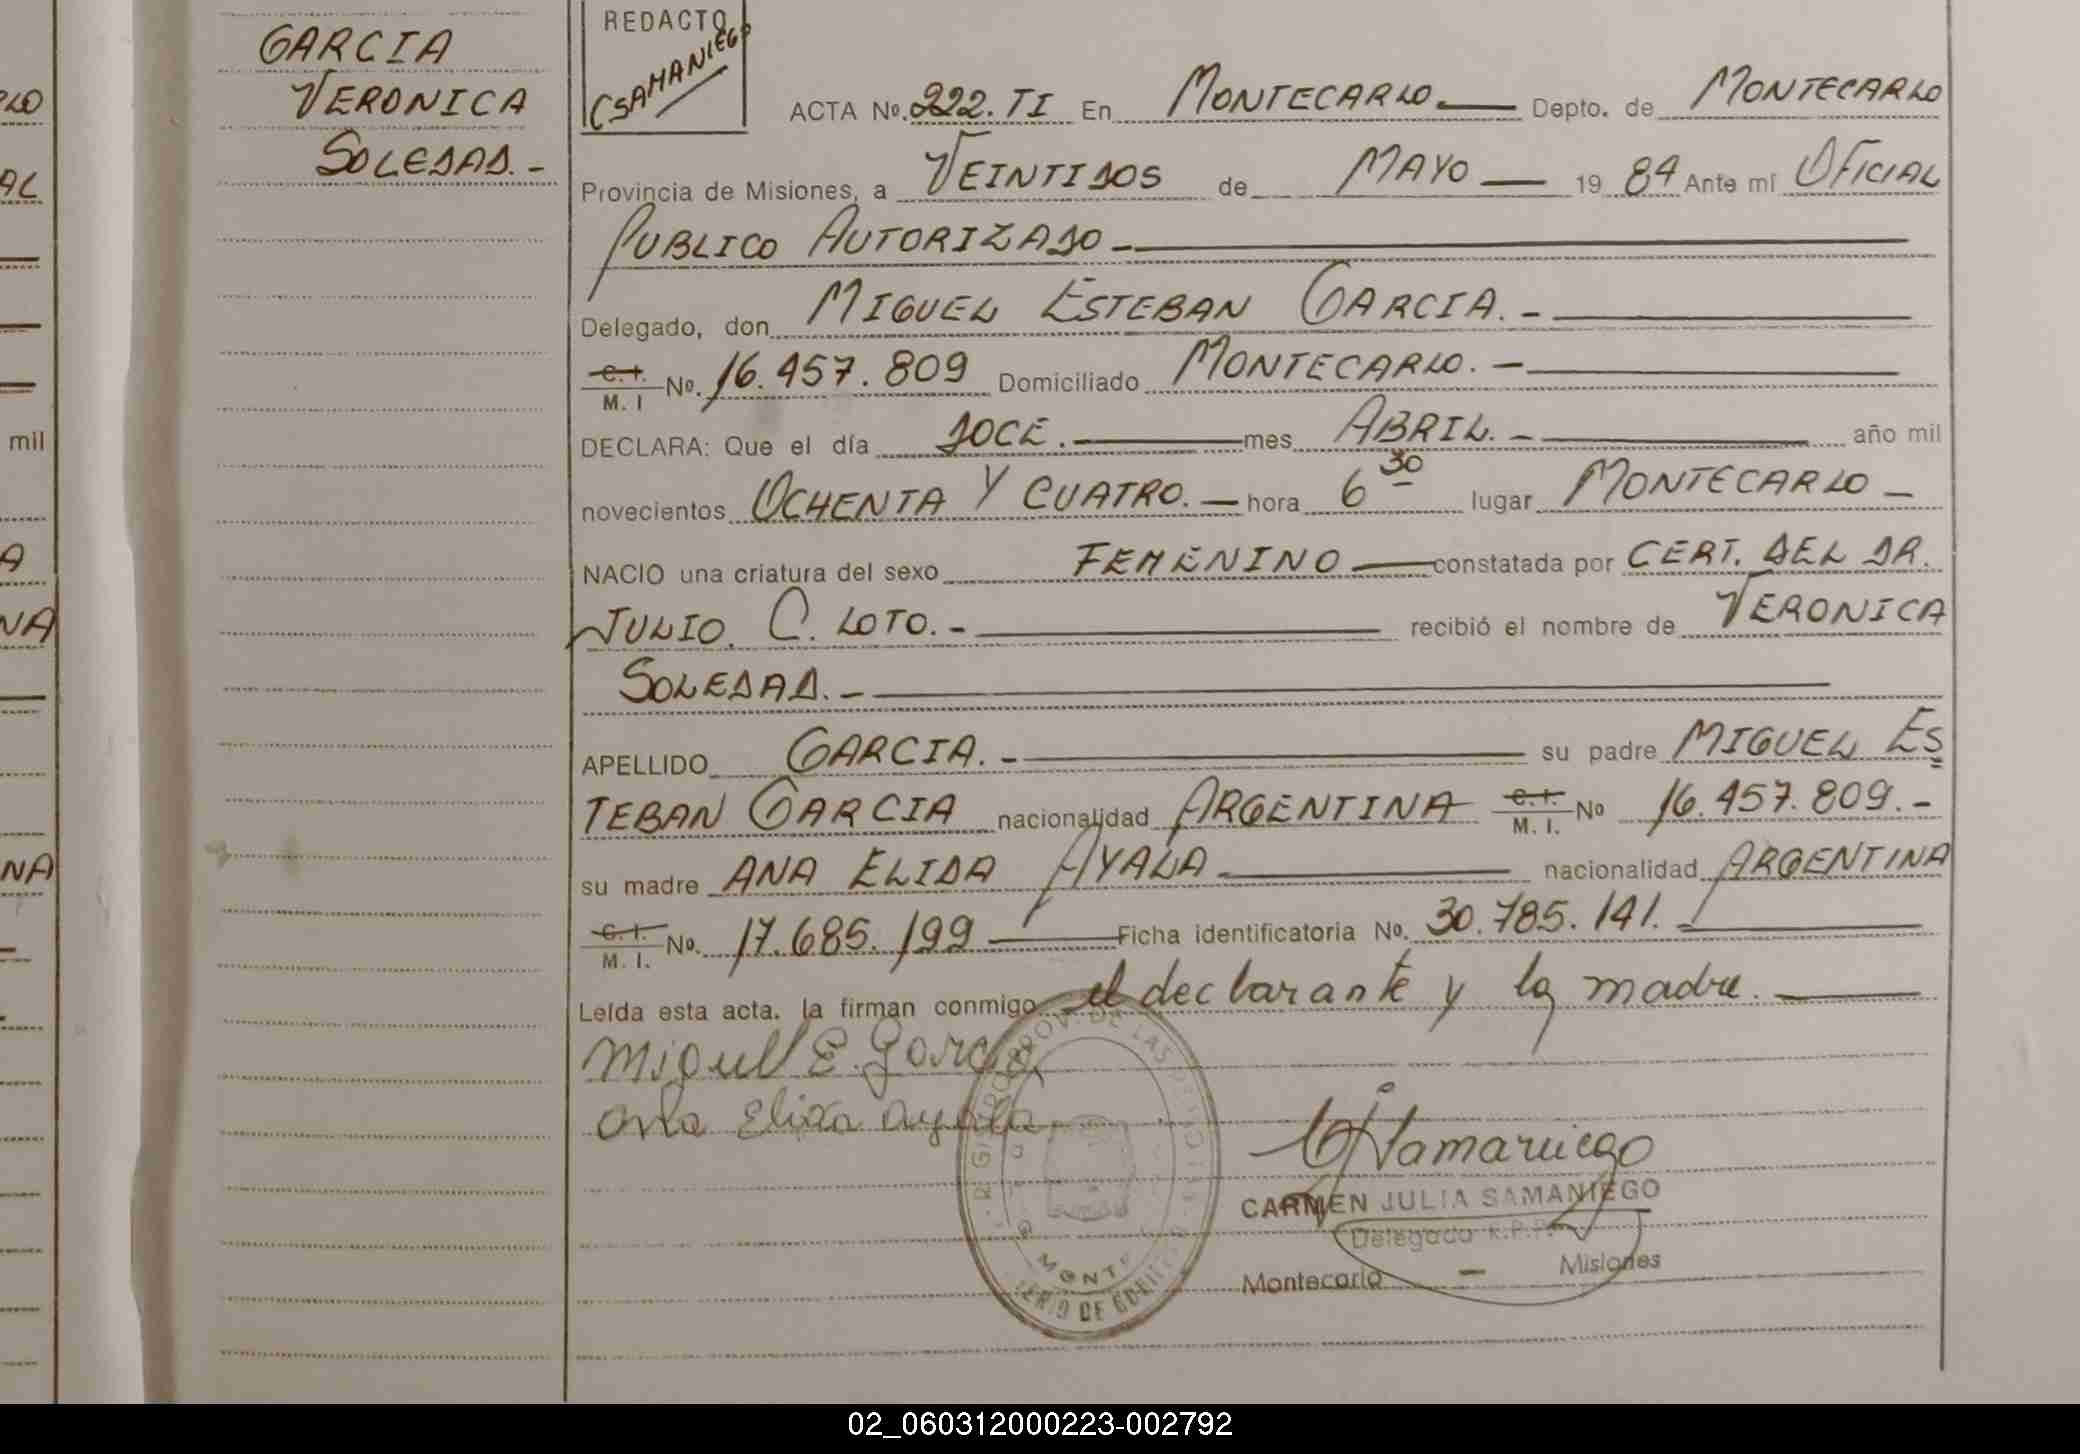 GARCIA
VERONICA
SOLEDAD.-
REDACTO
CSAMANIEGO
ACTA No. 222. TI En MONTECARLO Depto. de MONTECARLO
Provincia de Misiones, a VEINTIDOS de MAYO 19 84 Ante mí OFICIAL
PUBLICO AUTORIZADO -
Delegado, don MIGUEL ESTEBAN GARCIA. -
C. I.
M. I No. 16.457.809 Domiciliado MONTECARLO. -
DECLARA: Que el día DOCE. mes ABRIL. - año mil
novecientos OCHENTA Y CUATRO. hora 6 30 lugar MONTECARLO
NACIO una criatura del sexo FEMENINO constatada por CERT. DEL DR.
JULIO. C. LOTO. - recibió el nombre de VERONICA
SOLEDAD. -
APELLIDO GARCIA. - su padre MIGUEL ES
TEBAN GARCIA nacionalidad ARGENTINA C. I.
M. I. No 16.457.809. -
su madre ANA ELIDA AYALA nacionalidad ARGENTINA
C. I.
M. I. No. 17.685.199 Ficha identificatoria No. 30.785.141.
Leída esta acta. la firman conmigo el declarante y la madre.
Miguel E. Garcia
Ana Elida Ayala
CSamaniego
CARMEN JULIA SAMANIEGO
Delegado R.P.P.
Montecarlo - Misiones
mil
02_060312000223-002792